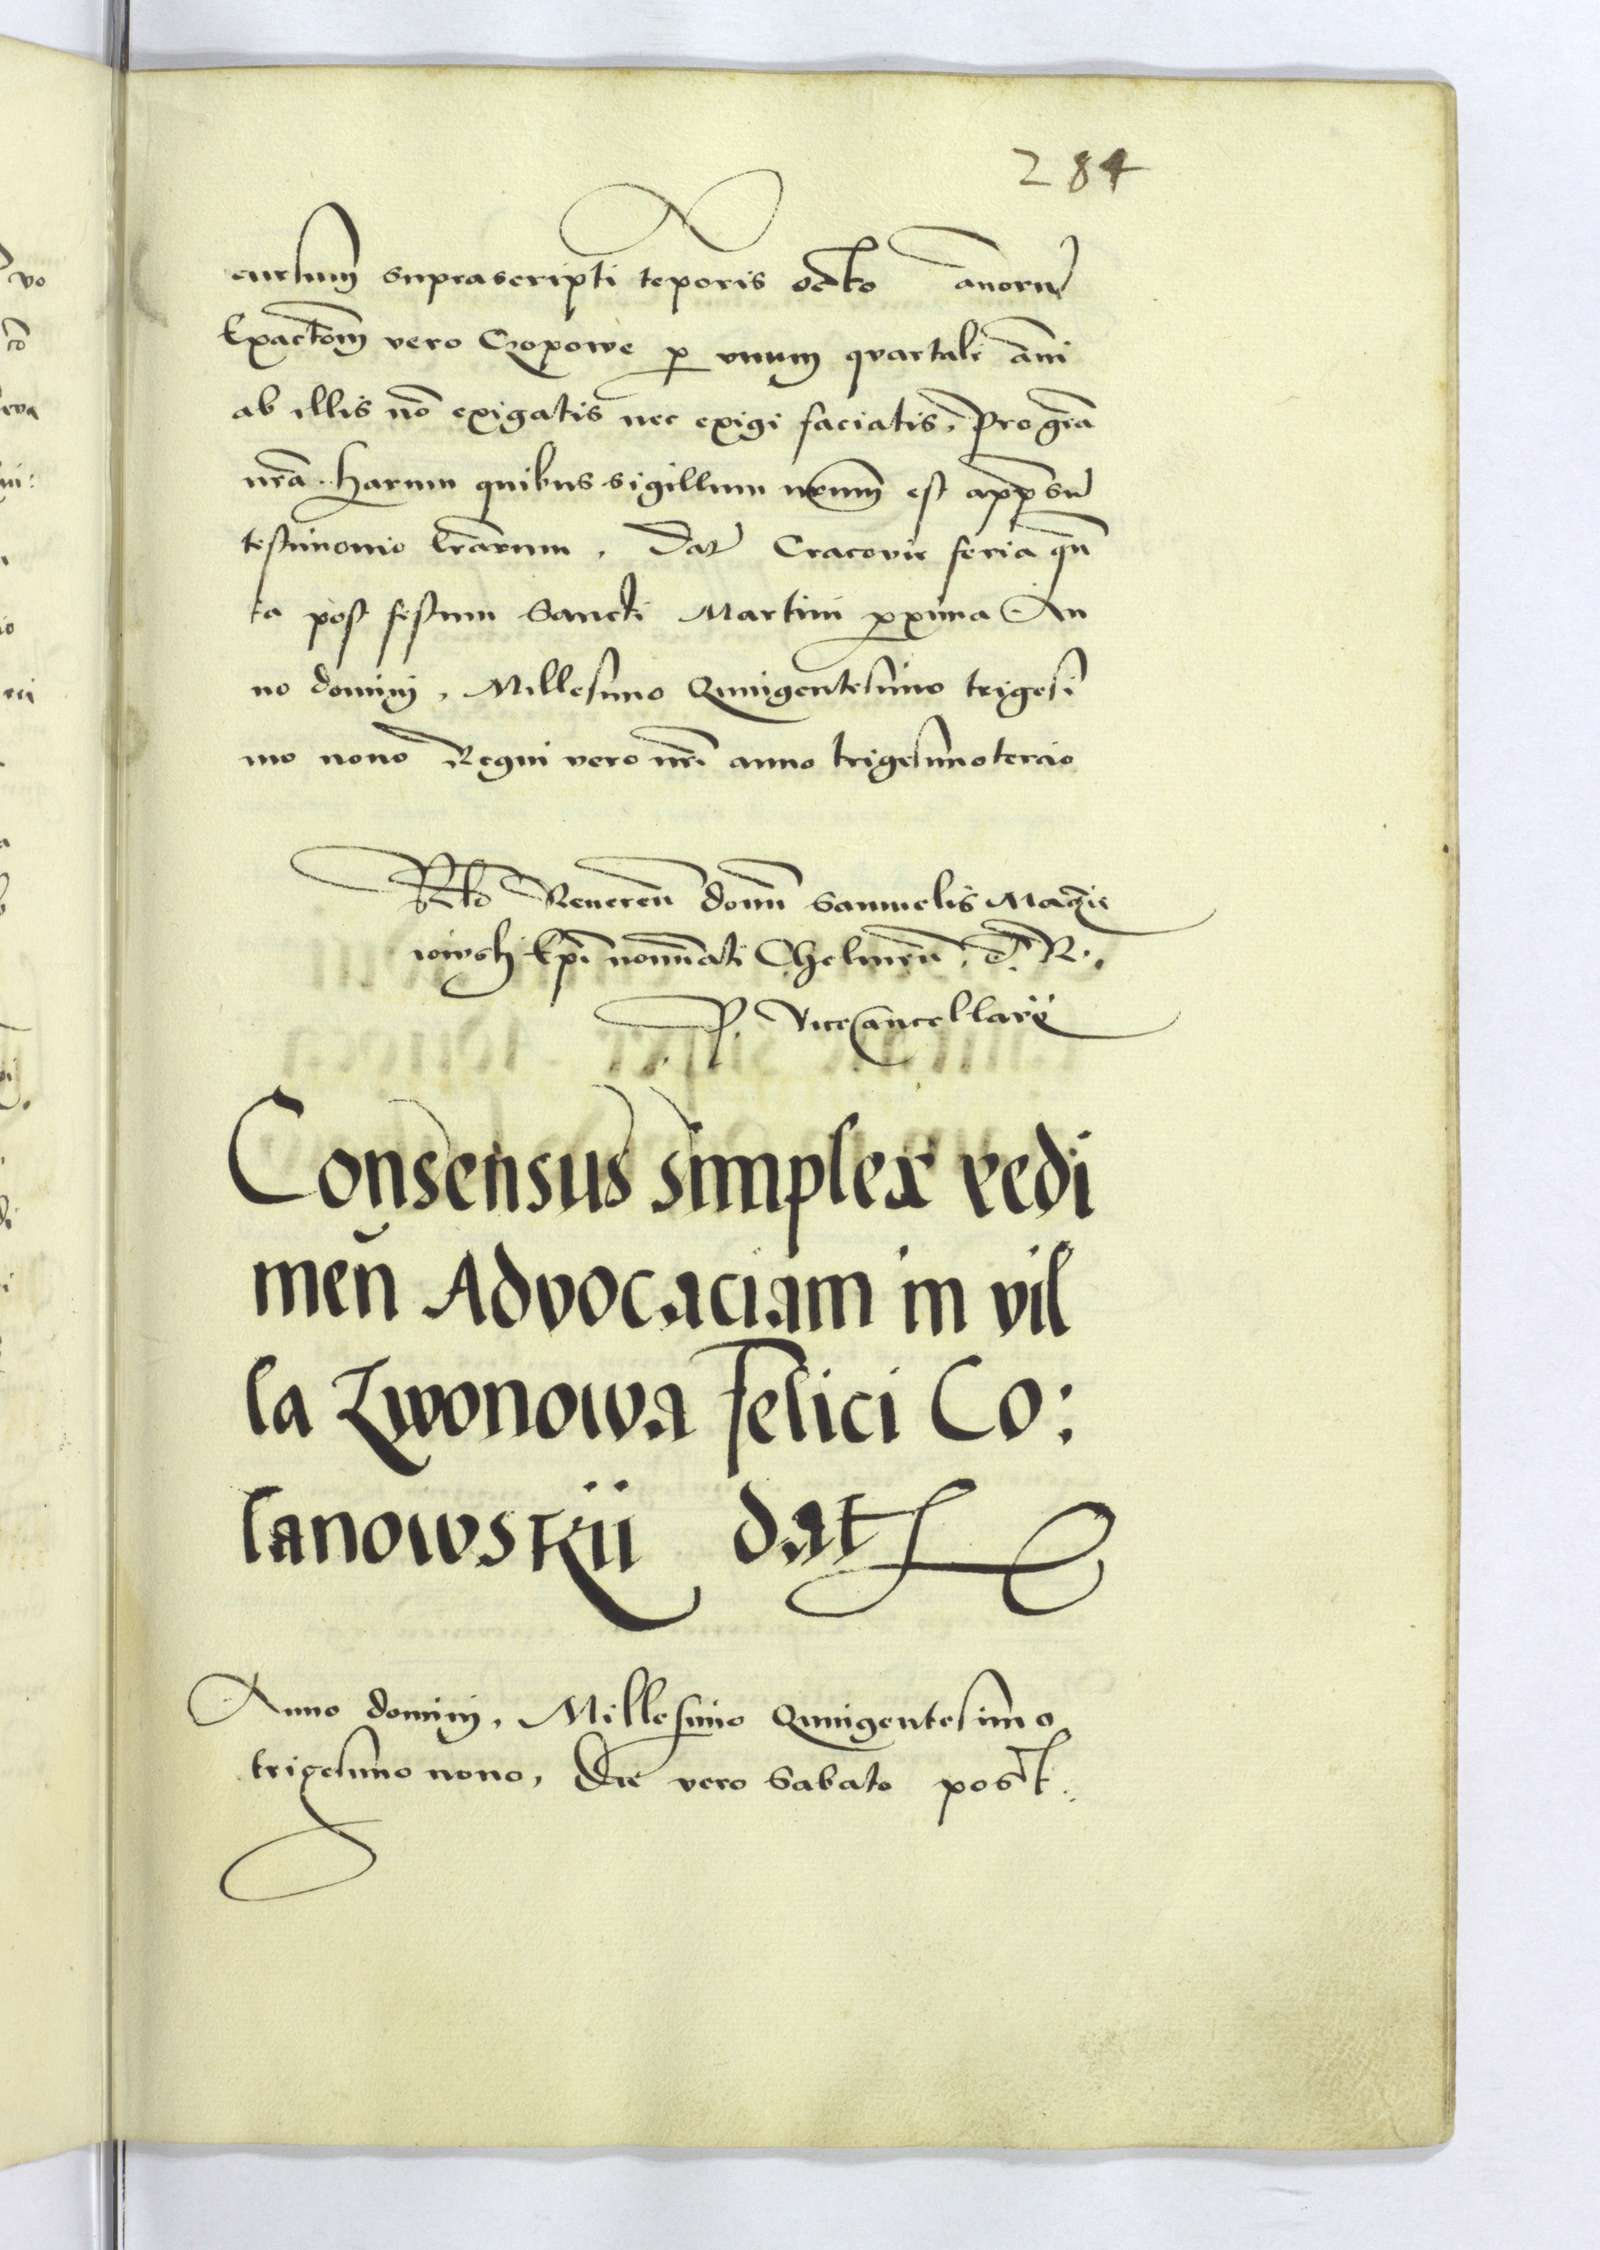 284
cursum suprascripti tēporis octo ānorū
Exactōm vero Czopowe p vnum quartale āni
ab illis nō exigatis nec exigi faciatis, Pro grā
nrā. Harum quibus sigillum nrum est appēsū
testimonio lrārum, Dat Cracovie feria quī
ta post festum Sancti Martini pxima An
no dominj, Millesimo Quingentesimo trigesi
mo nono Regni vero nrī anno trigesimotercio
Rlō Reverēn domī Samuelis Maczie
iowskj Epī nomīati Chelmēn. d. R.
P. ViceCancellarij
Consensus simplex redi
meñ Advocaciam in vil
la Zwonowa Felici Co:
lanowskii dat
Anno dominj, Millesimo Quingentesimo
trigesimo nono, Die vero Sabato post.